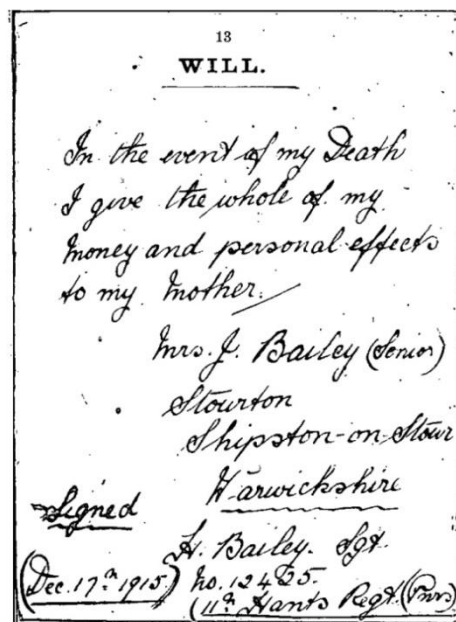 13
WILL.
In the event of my Death
I give the whole of my
Money and personal effects
to my Mother.
Mrs. J. Bailey (Senior)
Stourton
Shipston-on-Stour
Warwickshire
Signed
H. Bailey. Sgt.
(Dec. 17th 1915) No. 12425.
(11th Hants Regt. (Pnrs)